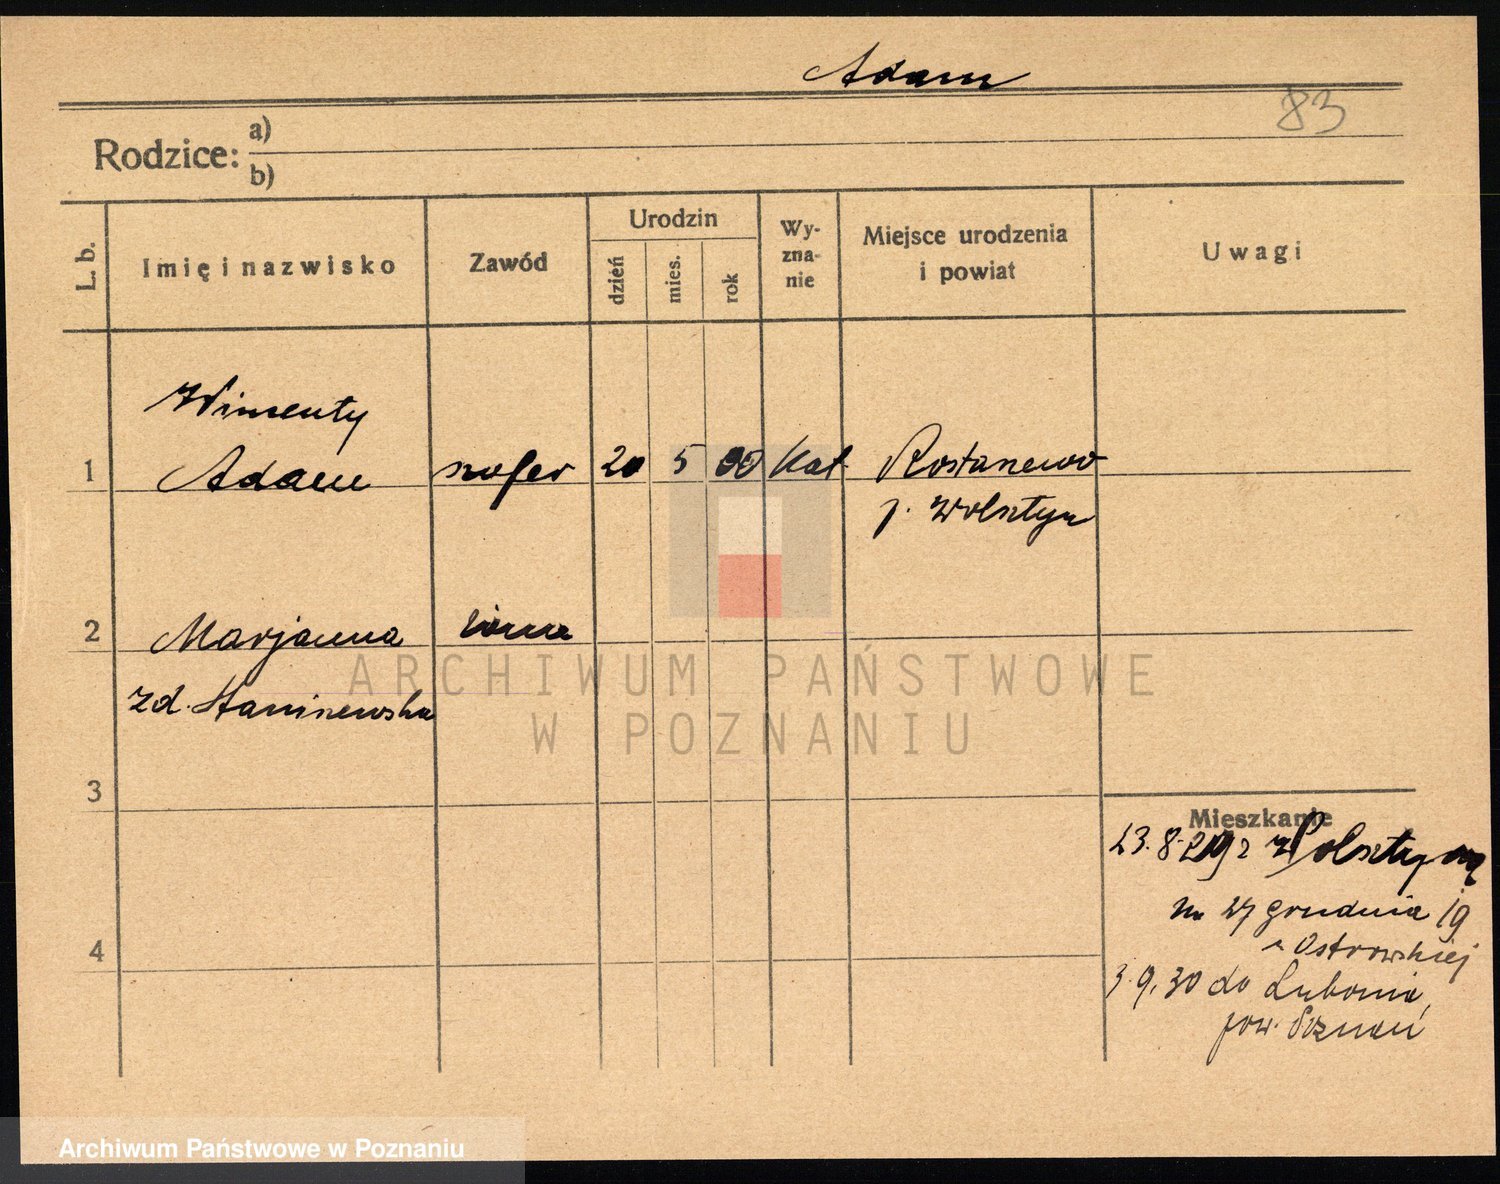 Adam
83
Rodzice: a)
b)
L. b.
Imię i nazwisko
Zawód
Urodzin
dzień
mies.
rok
Wy-
zna-
nie
Miejsce urodzenia
i powiat
Uwagi
Wincenty
1 Adam szofer 20 5 00 kat. Rostarzewo
p. Wolsztyn
2 Marjanna żona
zd. Staniszewska
ARCHIWUM PAŃSTWOWE
W POZNANIU
3
Mieszkanie
23.8.29 z Wolsztyna
na 27 grudnia 19
Ostrowskiej
4
3.9.30 do Lubonia,
pow. Poznań
Archiwum Państwowe w Poznaniu